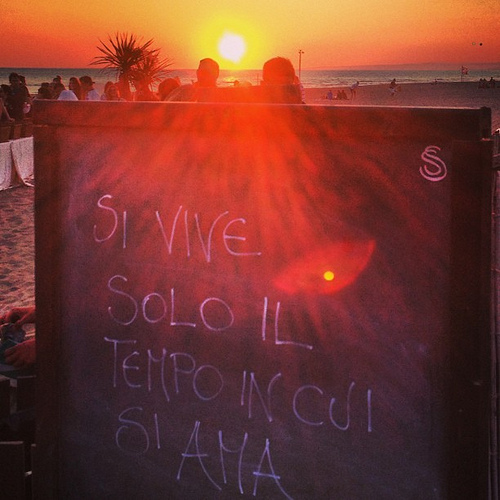 S
SI VIVE
SOLO IL
TEMPO IN CUI
SI AMA